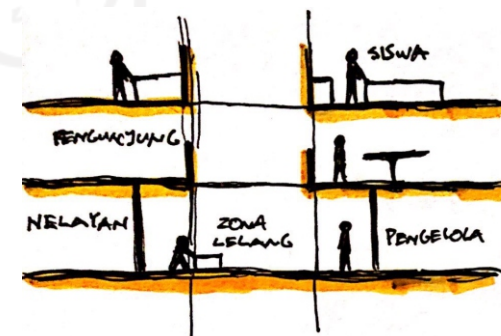 SISWA
PENGUNJUNG
NELAYAN
ZONA
LELANG
PENGELOLA